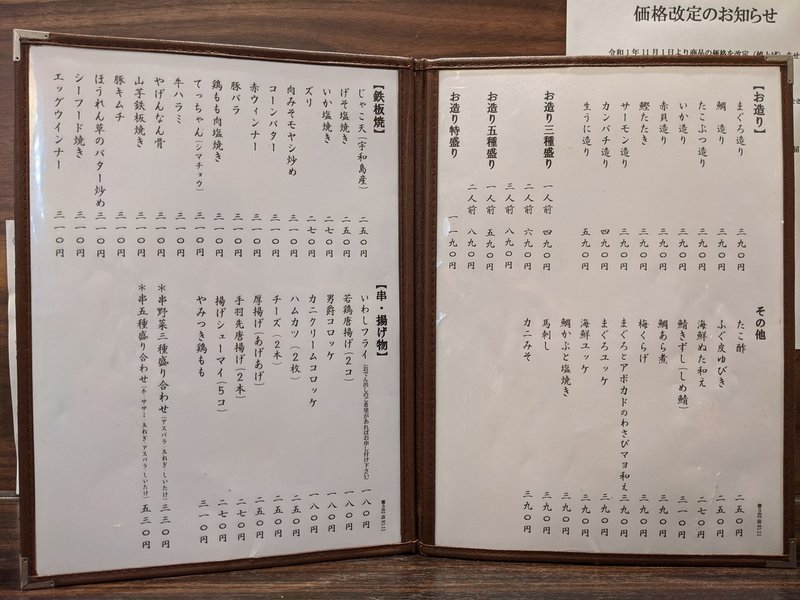 価格改定のお知らせ
令和1年11月1日より商品の価格を改定
【お造り】
まぐろ造り 三九〇円
鯛 造り 三九〇円
たこぶつ造り 三九〇円
いか造り 三九〇円
赤貝造り 三九〇円
鰹たたき 三九〇円
サーモン造り 三九〇円
カンパチ造り 四九〇円
生うに造り 五九〇円
お造り三種盛り 一人前 四九〇円
二人前 六九〇円
三人前 八九〇円
お造り五種盛り 一人前 五九〇円
二人前 八九〇円
お造り特盛り 一一九〇円
その他
たこ酢 二五〇円
ふぐ皮ゆびき 二五〇円
海鮮ぬた和え 二七〇円
鯖きずし(しめ鯖) 三一〇円
鯛あら煮 三九〇円
梅くらげ 三九〇円
まぐろとアボカドのわさびマヨ和え 三九〇円
まぐろユッケ 三九〇円
海鮮ユッケ 三九〇円
鯛かぶと塩焼き 三九〇円
馬刺し 三九〇円
カニみそ 三九〇円
【鉄板焼】
じゃこ天(宇和島産) 二五〇円
げそ塩焼き 二五〇円
いか塩焼き 二七〇円
ズリ 二七〇円
肉みそモヤシ炒め 三一〇円
コーンバター 三一〇円
赤ウィンナー 三一〇円
豚バラ 三一〇円
鶏もも肉塩焼き 三一〇円
てっちゃん(シマチョウ) 三一〇円
牛ハラミ 三一〇円
やげんなん骨 三一〇円
山芋鉄板焼き 三一〇円
豚キムチ 三一〇円
ほうれん草のバター炒め 三一〇円
シーフード焼き 三一〇円
エッグウインナー 三一〇円
【串・揚げ物】
いわしフライ 一八〇円
若鶏唐揚げ(2コ) 一八〇円
男爵コロッケ 一八〇円
カニクリームコロッケ 一八〇円
ハムカツ(2枚) 二五〇円
チーズ(2本) 二五〇円
厚揚げ(あげあげ) 二五〇円
手羽先唐揚げ(2本) 二七〇円
揚げシューマイ(5コ) 二七〇円
やみつき鶏もも 三一〇円
*串野菜三種盛り合わせ(アスパラ・玉ねぎ・しいたけ) 三三〇円
*串五種盛り合わせ(牛・ササミ・玉ねぎ・アスパラ・しいたけ) 五三〇円